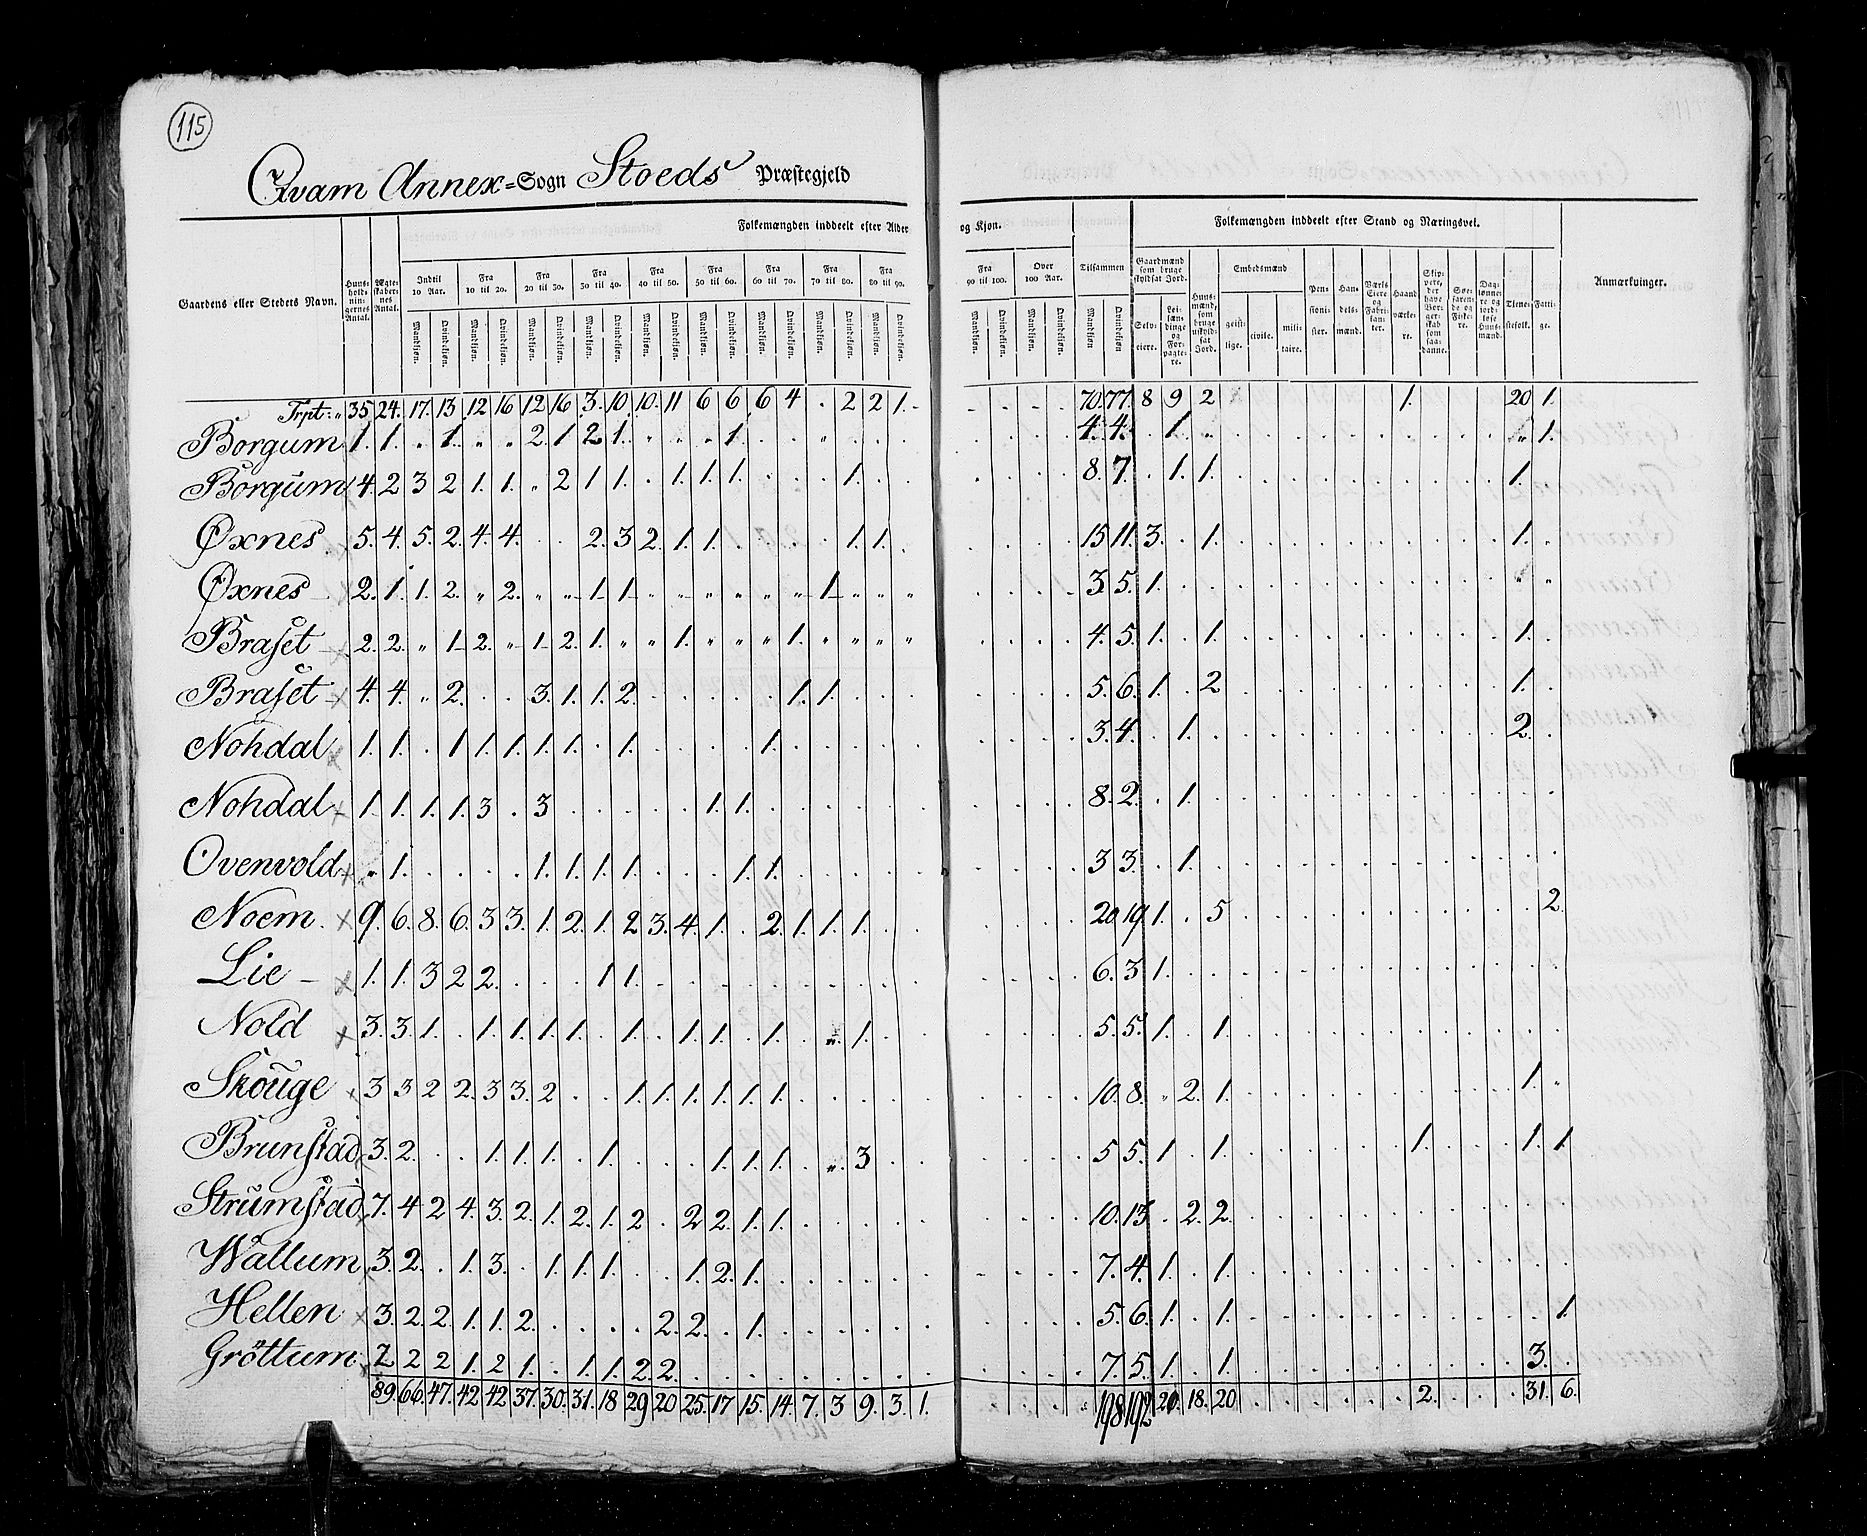 115
Qvam Annex=Sogn Stoeds Præstegjeld
Folkemængden inddeelt efter Alder og Kjøn. Folkemængden inddeelt efter Stand og Næringsvei.
Gaardens eller Stedets Navn. Huus-holdningernes Antal. Ægteskabernes Antal. Indtil 10 Aar. Fra 10 til 20. Fra 20 til 30. Fra 30 til 40. Fra 40 til 50. Fra 50 til 60. Fra 60 til 70. Fra 70 til 80. Fra 80 til 90. Fra 90 til 100. Over 100 Aar. Tilsammen Gaardmænd som bruge skyldsat Jord. Huusmænd, som bruge uskyldsat Jord. Embedsmænd Pensionister. Handelsmænd. Værks Eiere og Fabrikanter. Haandværkere. Skippere, der have Borgerskab som saadanne. Søefarende og Fiskere. Daglønnere og jordløse Huusmænd. Tienestefolk. Fattige. Anmærkninger.
Mandkiøn. Qvindekiøn. Mandkiøn. Qvindekiøn. Mandkiøn. Qvindekiøn. Mandkiøn. Qvindekiøn. Mandkiøn. Qvindekiøn. Mandkiøn. Qvindekiøn. Mandkiøn. Qvindekiøn. Mandkiøn. Qvindekiøn. Mandkiøn. Qvindekiøn. Mandkiøn. Qvindekiøn. Mandkiøn. Qvindekiøn. Mandkiøn Qvindekiøn Selveiere. Leilændinge og Forpagtere. geistlige. civile. militaire.
Trpt. " 35 24. 17. 13 12 16 12 16 3. 10. 10. 11 6 6 6 4 . 2 2 1. 70. 77. 8 9 2 1. 20 1.
Borgum 1. 1. " 1. " " 2. 1 2 1. " " " . 1. 4. 4. . 1. " " 1.
Borgum 4. 2 3 2 1. 1. " 2 1 1. . 1. 1. 1. 1. 8. 7. . 1. 1. 1.
Øxnes 5. 4. 5. 2. 4. 4. . . 2. 3 2. 1. 1. 1. 1. 15 11. 3. . 1. 1. .
Øxnes 2. 1. 1. 2. " 2. " " 1 1. " " " " " " 1 " " " 3. 5. 1. " "
Braset 2. 2. " 1 2. " 1 2. 1. " " 1. " " " 1. " " " " 4. 5. 1. . 1. 1. .
Braset 4. 4. " 2. . . 3. 1. 1. 2. 1. 1. 5. 6. 1. . 2 1. .
Nohdal 1. 1. . 1 1. 1. 1. 1. . 1. 1. 3. 4. . 1. 2. .
Nohdal 1. 1. 1. 1. 3 . 3 1. 1. 8. 2. . 1.
Ovenvold " 1. 1. 1. 1. 1. 1. 1. 3 3. . 1.
Noem 9. 6. 8. 6. 3 3. 1. 2. 1. 2 3. 4. 1. . 2. 1. 1. 1. 20 19. 1. . 5 2.
Lie 1. 1. 3 2 2. 1 1. 6. 3 1.
Nold 3. 3. 1. . 1. 1. 1. 1. . 1. . 1. 1. . 1. . " 1. 5. 5. 1. . 1.
Skouge 3 3 2 2. 3 3. 2 . . 1. 1. 1. 1. 1. 1. 10. 8. " 2. 1. 1. "
Brunstad 3. 2. . . 1. 1. 1. . 1. 1. 1. 1. . " 3 5 5. 1. . 1. 1. 1. 1
Strumstad 7. 4 2 4. 3. 2. 1. 2. 1. 2 . 2 2. 1. 1. 10. 13. . 2. 2.
Wallum 3. 2. . 1. 3. . 1. 1. 1. . . 1. 2. 1. 7. 4. 1. . 1.
Hellen 3. 2. 2. 1. 1. 2. 2. 2. . 1. 5. 6. 1. . 1. 1
Gröttum 2 2 2 1. 2 1. . 1. 1. 2 2. 7. 5. 1. . 1. 3. .
89. 66. 47. 42 42 37. 30. 31. 18 29 20 25. 17 15. 14 7. 3 9. 3. 1. 198 192 20. 18. 20 2. 31. 6.